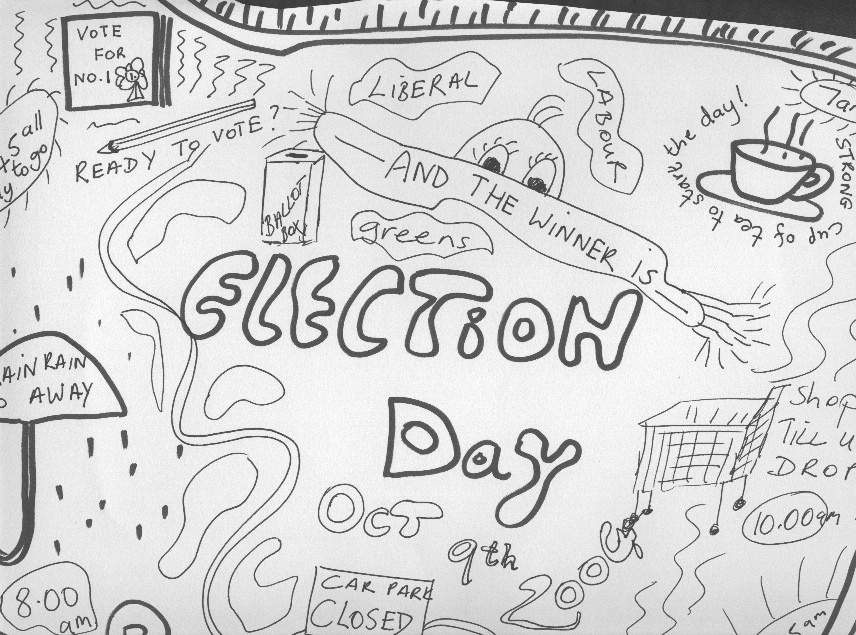 VOTE
FOR
NO.1
READY TO VOTE?
BALLOT
BOX
LIBERAL
LABOUR
greens
AND THE WINNER IS
7am
STRONG
cup of tea to start the day!
5 all
to go
ELECTION
Day
Oct
9th
2004
RAIN
AWAY
Shop
TILL U
DROP
10.00am
8.00
am
CAR PARK
CLOSED
am